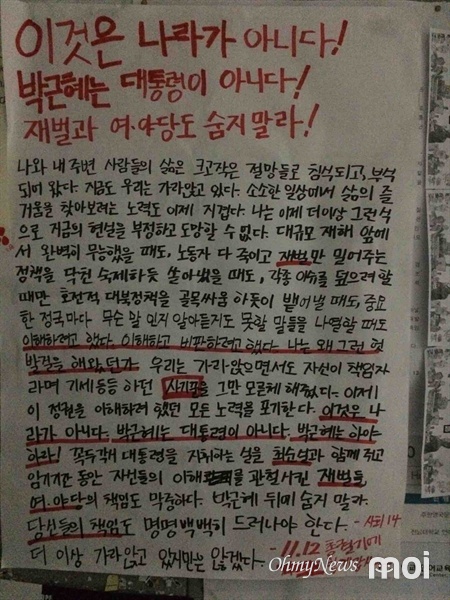 이것은 나라가 아니다!
박근혜는 대통령이 아니다!
재벌과 여·야당도 숨지 말라!
나와 내 주변 사람들의 삶은 크고작은 절망들로 침식되고, 부식
되어 왔다. 지금도 우리는 가라앉고 있다. 소소한 일상에서 삶의 즐
거움을 찾아보려는 노력도 이제 지겹다. 나는 이제 더이상 그런식
으로 지금의 현실을 부정하고 도망할 수 없다. 대규모 재해 앞에
서 완벽히 무능했을 때도, 노동자 다 죽이고 재벌만 밀어주는
정책을 막힌 숙제하듯 쏟아냈을 때도, 각종 이슈를 덮으려 할
때만 호전적 대북정책을 골목싸움 하듯이 뱉어낼 때도, 중요
한 정국마다 무슨 말인지 알아듣지도 못할 말들을 나열할 때도
이해하려고 했다. 이해하고 비판하려고 했다. 나는 왜 그런 헛
발질을 해왔던가. 우리는 가라앉으면서도 자신이 책임자
라며 기세등등 하던 사기꾼을 그만 모르체 해줬다. 이제
이 정권을 이해하려 했던 모든 노력을 포기한다. 이것은 나
라가 아니다. 박근혜는 대통령이 아니다. 박근혜는 하야
하라! 꼭두각시 대통령을 자처하는 널 최순실과 함께 주고
받기간 동안 자신들의 이해를 관철시킨 재벌들
여.야당의 책임도 막중하다. 박근혜 뒤에 숨지 말라.
당신들의 책임도 명명백백히 드러나야 한다.
더 이상 가라앉고 있지만은 않겠다.
- 사회 14
- 11.12
OhmyNews
moi